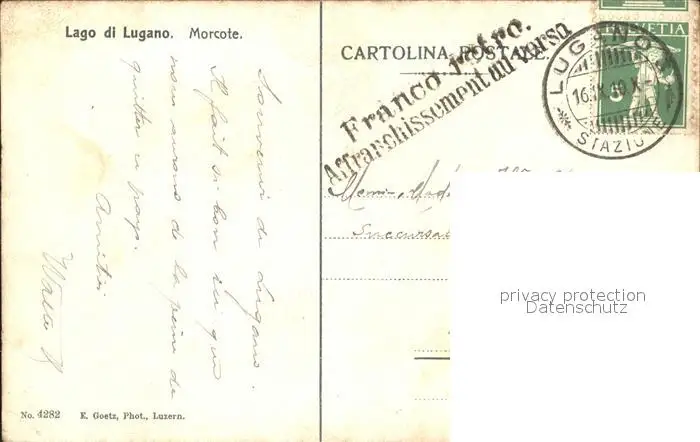 Lago di Lugano. Morcote.
CARTOLINA POSTALE.
Franco retro.
Affranchissement au verso
HELVETIA
5
LUGANO
16.IX.10.X
STAZIONE
Souvenir de Lugano.
Il fait si bon ici que
nous aurons de la peine de
quitter ce pays.
Amitiés
Succursale
privacy protection
Datenschutz
No. 4282 E. Goetz, Phot., Luzern.